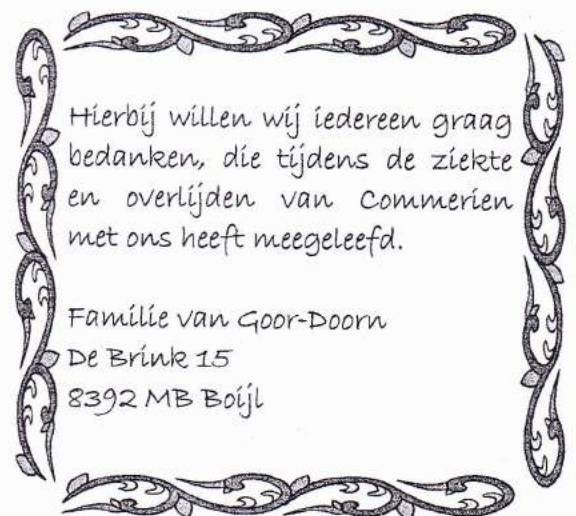 Hierbij willen wij iedereen graag
bedanken, die tijdens de ziekte
en overlijden van Commerien
met ons heeft meegeleefd.
Familie van Goor-Doorn
De Brink 15
8392 MB Boijl